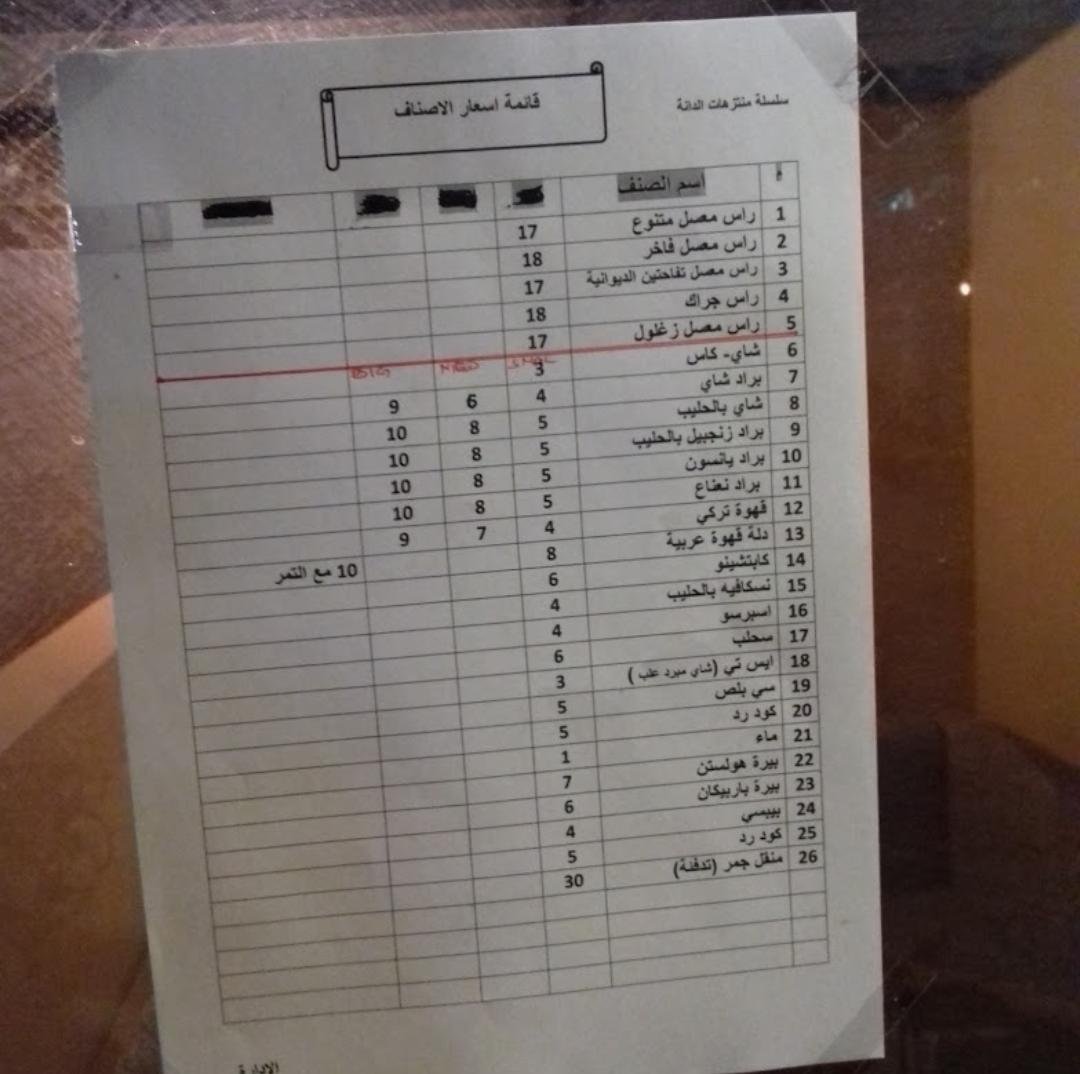 سلسلة منتزهات الدانة
قائمة اسعار الاصناف
م اسم الصنف
1 راس معسل متنوع 17
2 راس معسل فاخر 18
3 راس معسل تفاحتين الديوانية 17
4 راس جراك 18
5 راس معسل زغلول 17
SMAL MED BIG
6 شاي- كاس 3
7 براد شاي 4 6 9
8 شاي بالحليب 5 8 10
9 براد زنجبيل بالحليب 5 8 10
10 براد يانسون 5 8 10
11 براد نعناع 5 8 10
12 قهوة تركي 4 7 9
13 دلة قهوة عربية 8 10 مع التمر
14 كابتشينو 6
15 نسكافيه بالحليب 4
16 اسبرسو 4
17 سحلب 6
18 ايس تي (شاي مبرد علب ) 3
19 سي بلص 5
20 كود رد 5
21 ماء 1
22 بيرة هولستن 7
23 بيرة باربيكان 6
24 بيبسي 4
25 كود رد 5
26 منقل جمر (تدفئة) 30
الادارة